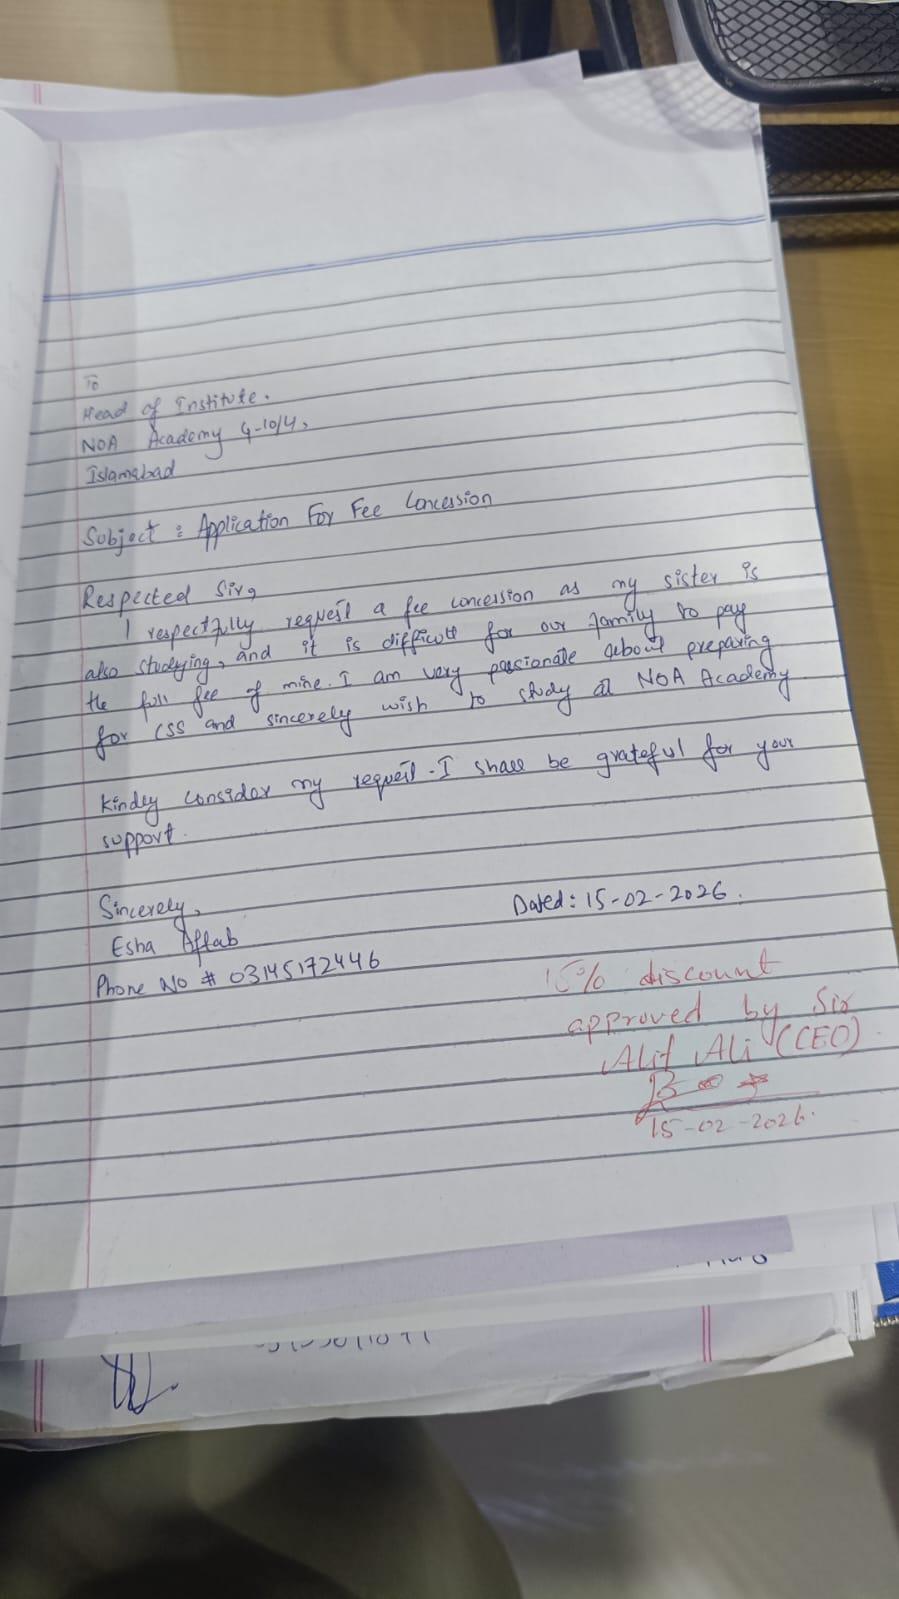 To
Head of Institute.
NOA Academy G-10/4,
Islamabad
Subject: Application For Fee Concession
Respected Sir,
I respectfully request a fee concession as my sister is
also studying, and it is difficult for our family to pay
the full fee of mine. I am very passionate about preparing
for CSS and sincerely wish to study at NOA Academy
Kindly consider my request. I shall be grateful for your
support.
Sincerely,
Esha Aftab
Phone No # 03145172446
Dated: 15-02-2026.
discount
approved by Sir
Ali (CEO)
15-02-2026.